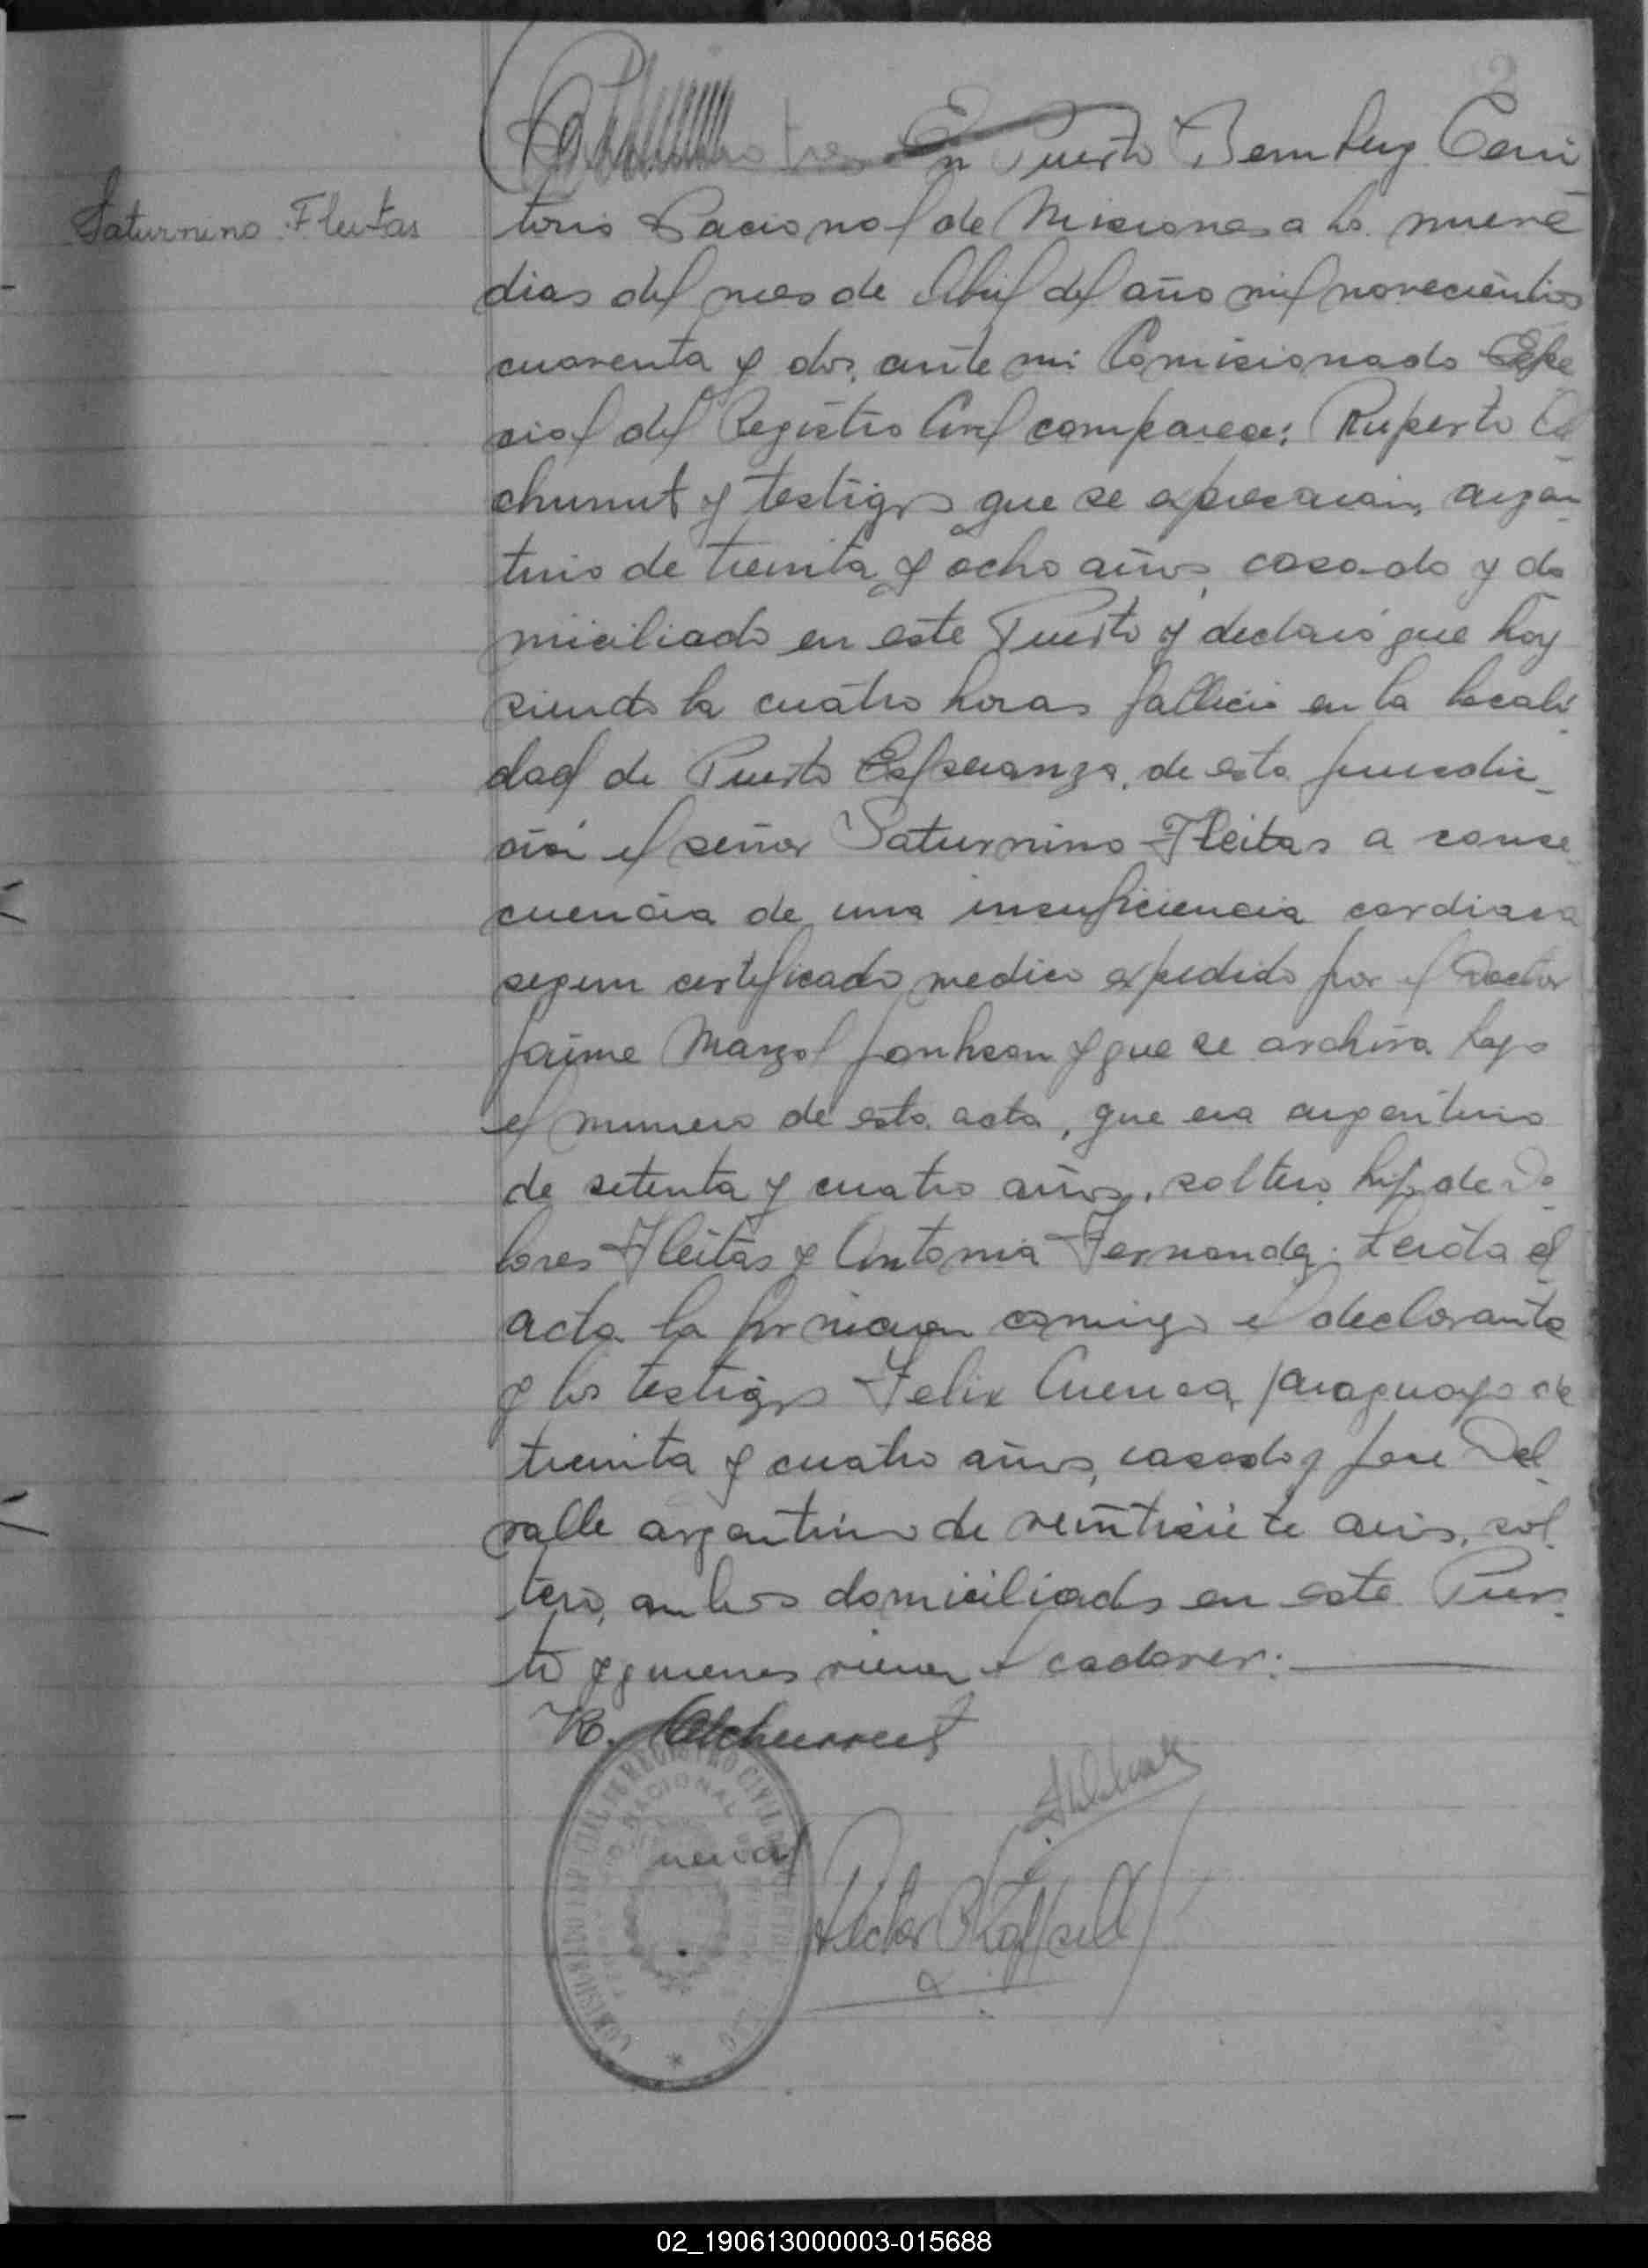 2
tres En Puerto Bemberg Terri
Saturnino Fleitas
torio Nacional de Misiones a los nueve
dias del mes de Abril del año mil novecientos
cuarenta y dos, ante mi Comisionado Espe
cial del Registro Civil comparece: Ruperto El
churrut y testigos que se expresaran, argen
tino de treinta y ocho años, casado y do
miciliado en este Puerto y declaró que hoy
siendo la cuatro horas fallecio en la locali
dad de Puerto Esperanza, de esta jurisdic_
ción el señor Saturnino Fleitas a conse
cuencia de una insuficiencia cardiaca
segun certificado medico expedido por el Doctor
Jaime Marzol Jonhson y que se archiva bajo
el numero de esta acta, que era argentino
de setenta y cuatro años, soltero hijo de Do
lores Fleitas y Antonia Fernandez. Leida el
acta la firmaron conmigo el declarante
y los testigos Felix Cuenca, paraguayo de
treinta y cuatro años, casado y Jose Del
valle argentino de veintisiete años, sol
tero, ambos domiciliados en este Puer
to y quienes vieron el cadaver.
R. Elchurrut
COMISIONADO ESPECIAL DE REGISTRO CIVIL
NACIONAL
Hector Raffaelli
02_190613000003-015688